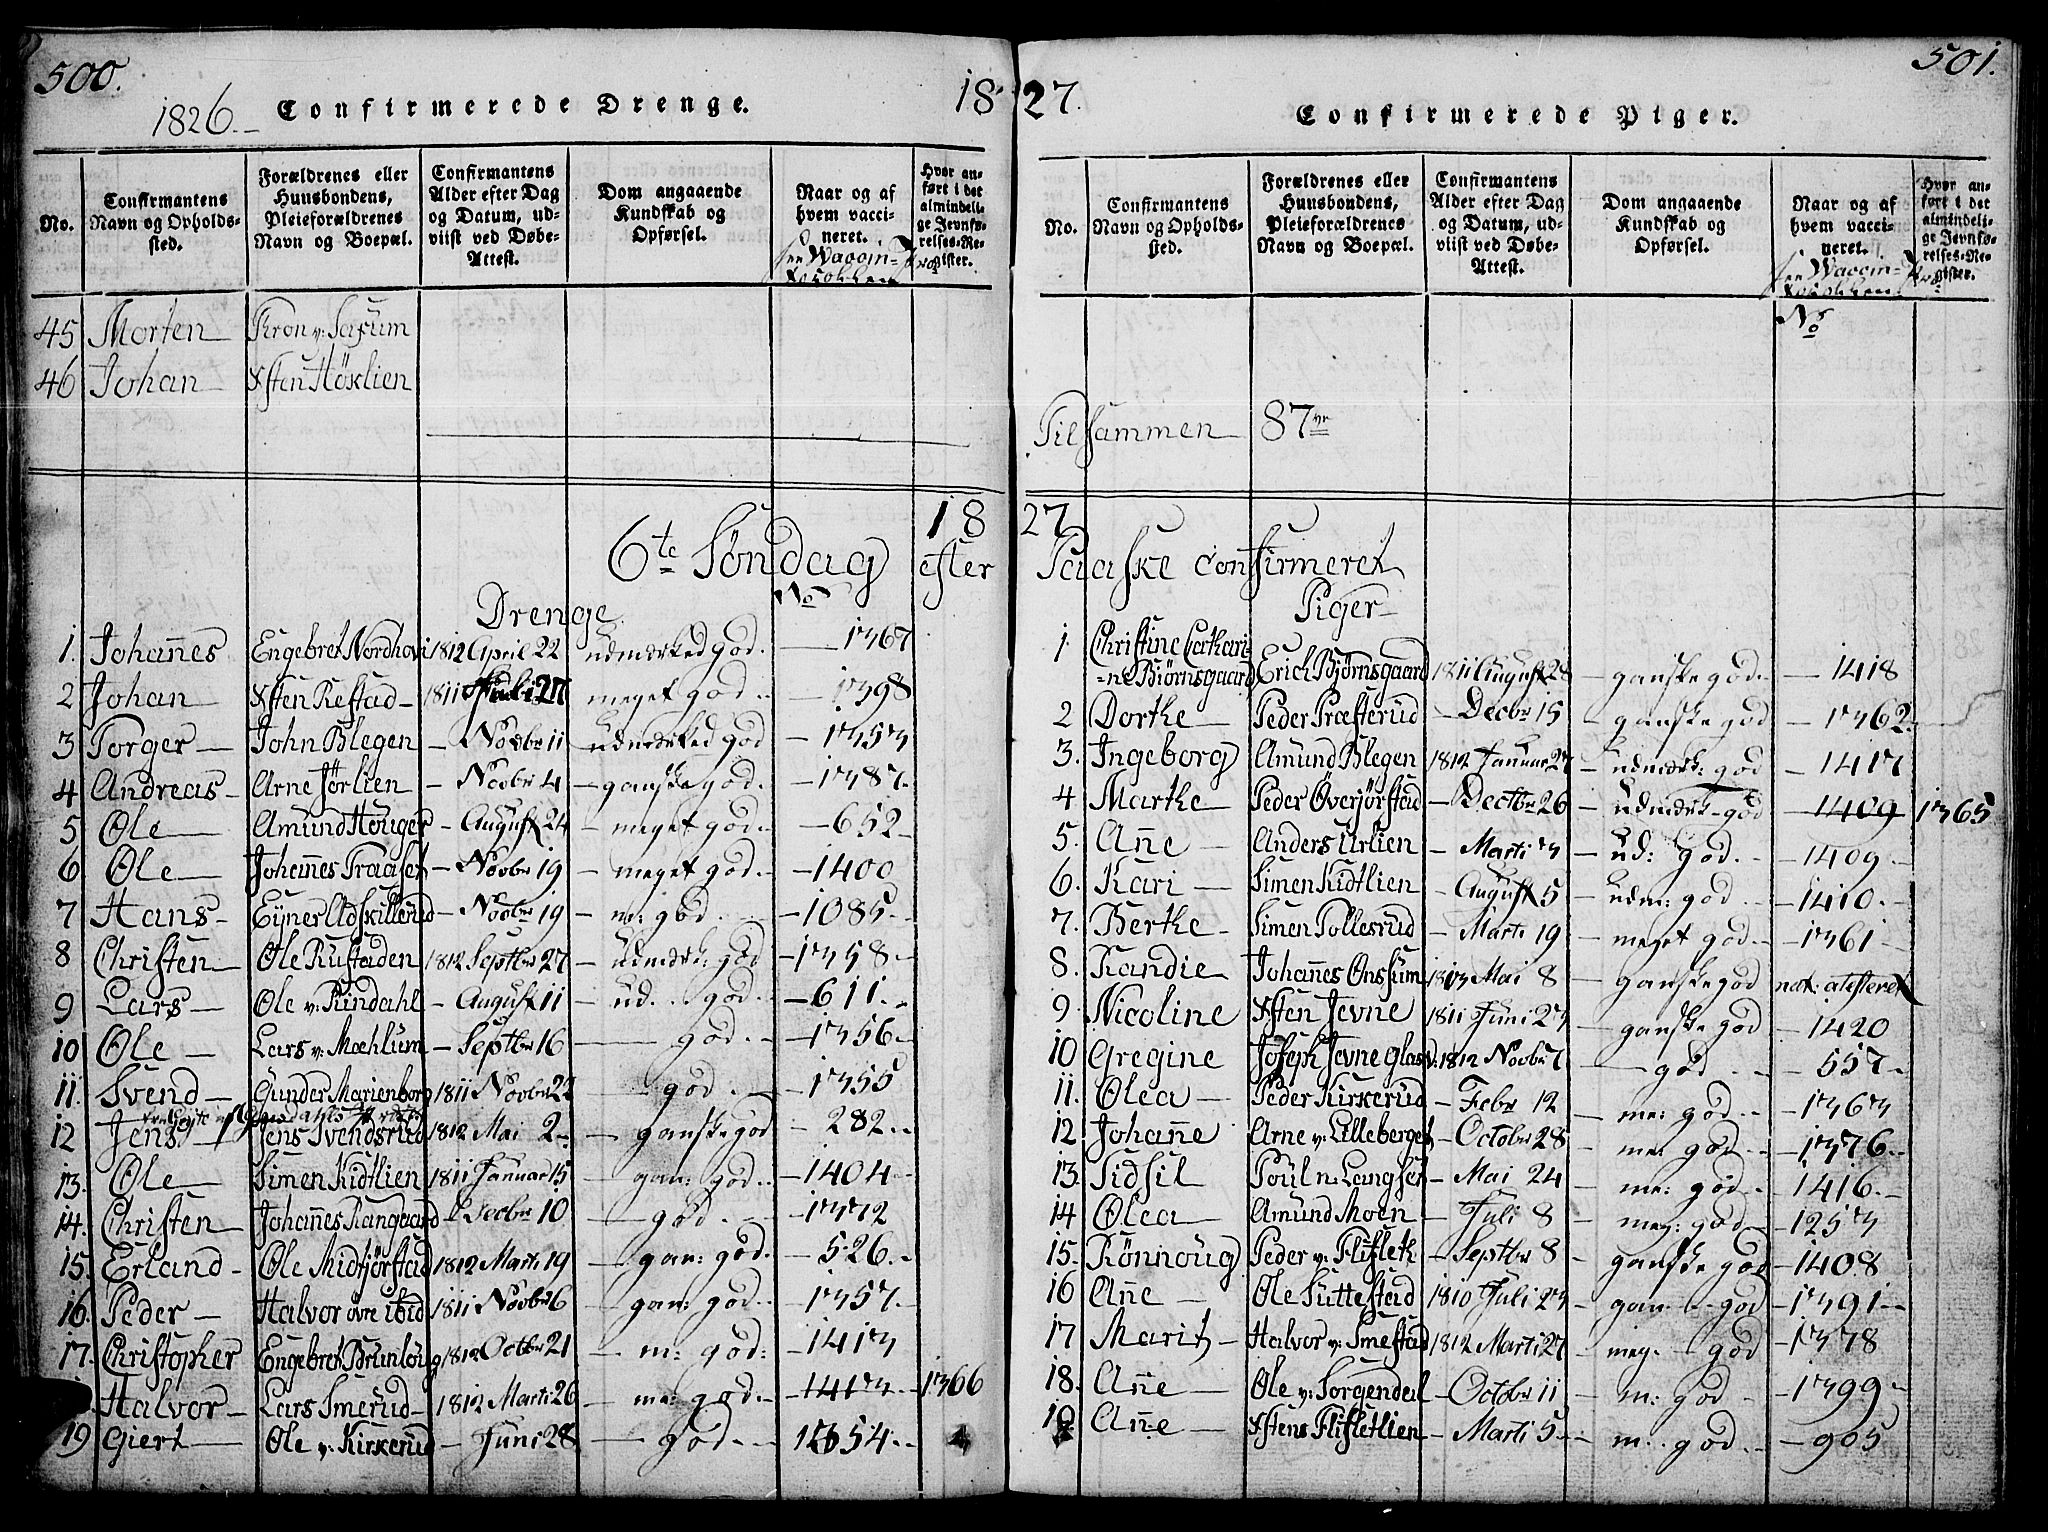 500.
1826.
Confirmerede Drenge.
18
No.
Confirmantens Navn og Opholdssted.
Forældrenes eller Huusbondens, Pleieforældrenes Navn og Boepæl.
Confirmantens Alder efter Dag og Datum, udviist ved Døbe-Attest.
Dom angaaende Kundskab og Opførsel.
Naar og af hvem vaccineret.
Hvor anført i det almindelige Jevnførelses-Register.
45 Morten
46 Johan
6te Søndag
18
efter
Drenge
No
1. Johannes Engebret Nordhovi 1812 April 22 udmærked god. 1367
2 Johan Østen Restad 1811 Juli 27 meget god 1398
3 Torger John Blegen – Novbr 11 udmærked god – 1353
4 Andreas Arne Jørlien – Novbr 4 – ganske god – 1387.
5 Ole Amund Houger – August 24 – meget god – 652
6 Ole Johannes Traaset – Novbr 19 – meget god – 1400
7 Hans – Novbr 19 – m: god – 1085
8 Christen Ole Rustaden 1812 Septbr 27 – udmærk: god – 1358
9 Lars Ole v: Rindahl – August 11 – ud. god – 611
10 Ole Lars v: Mæhlum – Septbr 16 – god – 1356
11. Svend Gunder Marienborg 1811 Novbr 22 – god – 1355
12 Jens Jens Svendsrud 1812 Mai 2 – ganske god 282
13. Ole Simen Kidtlien 1811 Januar 15 gan: god 1404
14. Christen Johannes Rangaard Decbr 10 – god 1372
15. Erland Ole Midtjørstad 1812 Marti 19 – gan: god. – 526
16. Peder Halvor øvre ibid 1811 Novbr 6 – gan: god – 1357
17. Christopher Engebret Brunloug 1812 Octbr 21 – m: god: – 1413
Halvor Lars Smerud 1812 Marti 26 me: god 1366
19 Giert Ole v: Kirkerud – Juni 28 – god
501.
27.
Confirmerede Piger.
No.
Confirmantens Navn og Opholdssted.
Forældrenes eller Huusbondens, Pleieforældrenes Navn og Boepæl.
Confirmantens Alder efter Dag og Datum, udviist ved Døbe-Attest.
Dom angaaende Kundskab og Opførsel.
Naar og af hvem vaccineret.
Hvor anført i det almindelige Jevnførelses-Register.
No
Tilsammen 87
27
Paaske confirmeret
Piger
1. Christine Cathari-
ne Biørnsgaard Erich Bjørnsgaard 1811 August 28 – ganske god – 1418
2 Dorthe Peder Præsterud – Decbr 15 – ganske god – 1362
3. Ingeborg Amund Blegen 1812 Januar 27 – udmærk: god – 1417
4 Marthe Peder Øverjørstad – Dectbr 26 – udmærk god 1409 1365
5. Anne Anders Urlien – Marti 3 – ud: god – 1409
6. Kari Simen Kidtlien – August 5 udm: god – 1410
7. Berthe Simen Tollesrud – Marti 19 – meget god 1361
8. Randie Johannes Onssum 1813 Mai 8 – ganske god not: atesteret
9. Nicoline Østen Jevne 1811 Juni 23 – ganske god – 1420
10 Gregine Joseph Jevne 1812 Novbr 7 – god – 557
11. Olea Peder Kirkerud – Febr 12 – me: god – 1363
12 Johanne Arne v: Lilleberget – October 28 – me: god 1376
13. Sidsil Poul n: Langset – Mai 24 – me: god 1416
14 Olea Amund Moen – Juli 8 – meg: god 1253
15. Rønnoug Peder v: Flisleth – Septbr 8 – ganske god 1408
16 Anne Ole Suttestad 1810 Juli 23 – gan god – 1391
17 Marit Halvor v: Smestad 1812 Marti 27 – meg. god – 1378
18. Anne Ole v: Sorgendal – October 11 – m: god – 1399
19 Anne Østens Flisletlien – Marti 5 – m. god – 905